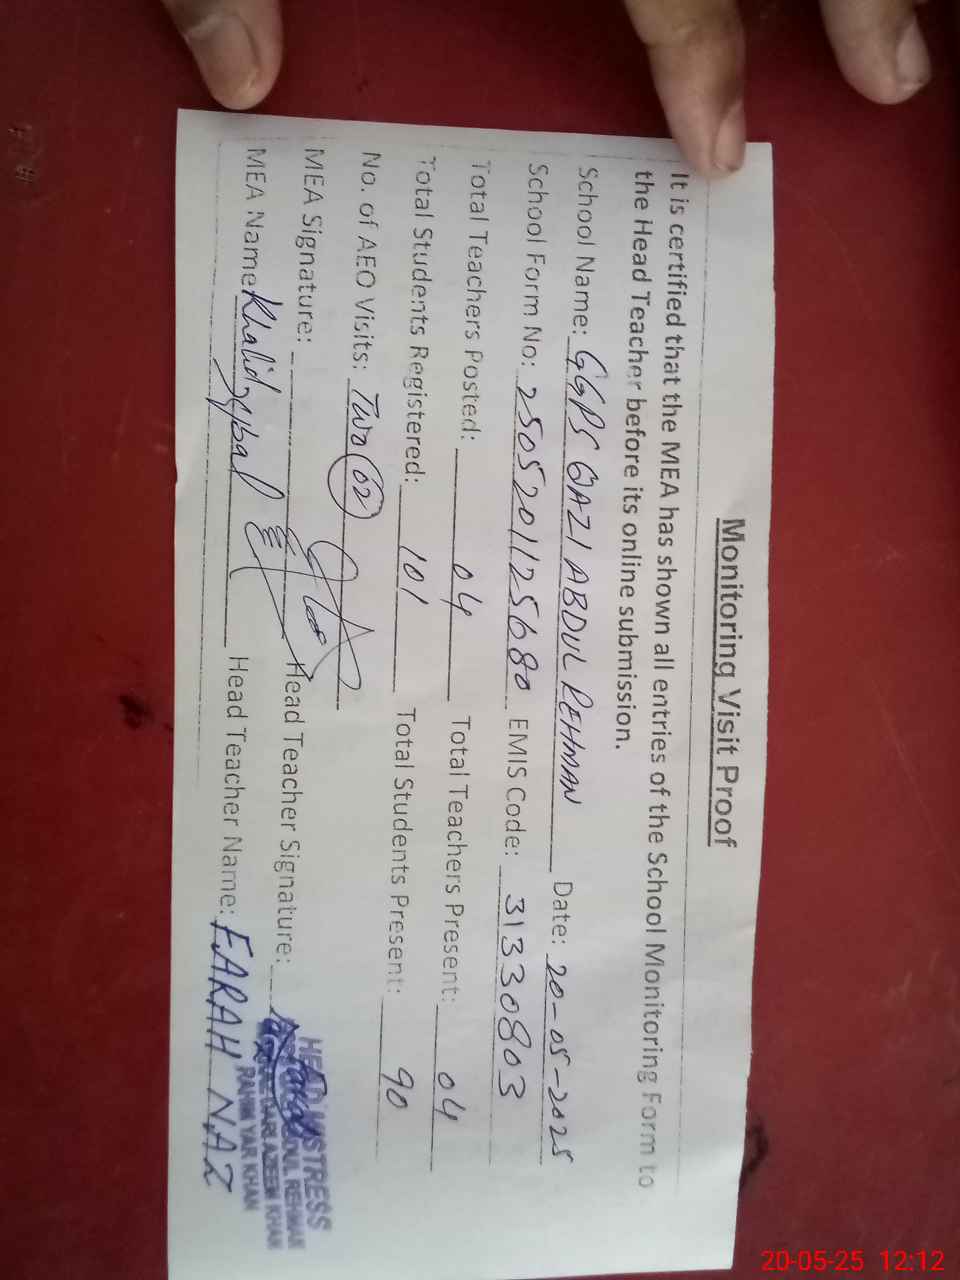 Monitoring Visit Proof
It is certified that the MEA has shown all entries of the School Monitoring Form to
the Head Teacher before its online submission.
School Name: GGPS QAZI ABDUL REHMAN Date: 20-05-2025
School Form No: 2505201125680 EMIS Code: 31330803
Total Teachers Posted: 04 Total Teachers Present: 04
Total Students Registered: 101 Total Students Present: 90
No. of AEO Visits: Two (02)
MEA Signature: Head Teacher Signature:
HEADMISTRESS
ABDUL REHMAN
AZEEM KHAN
RAHIM YAR KHAN
MEA Name Khalid Iqbal Head Teacher Name: FARAH NAZ
20-05-25 12:12